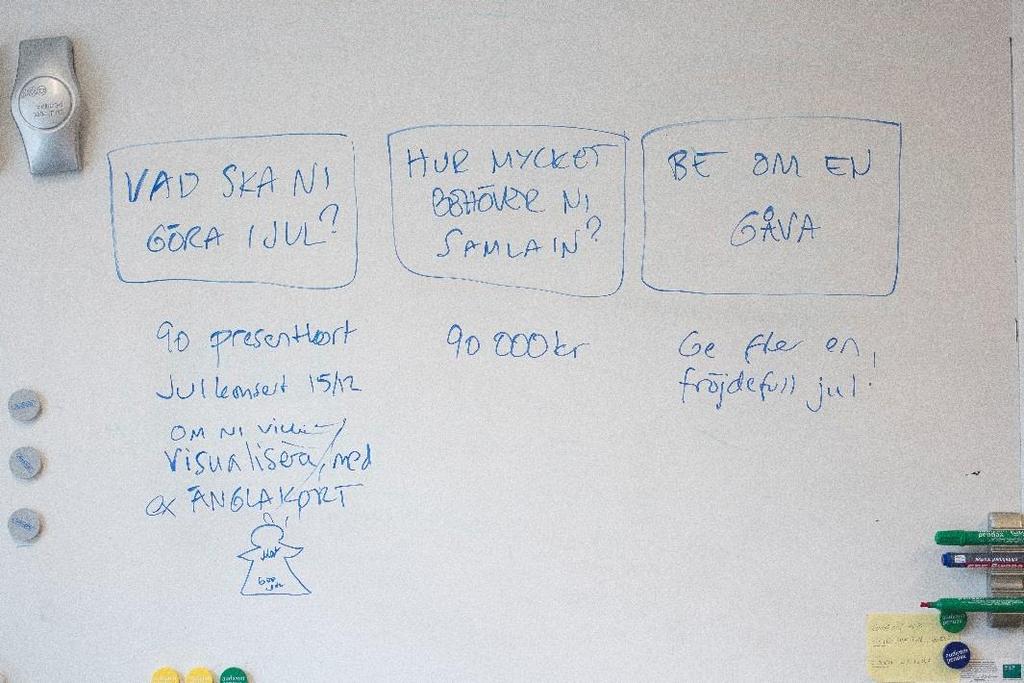 VAD SKA NI
GÖRA I JUL?
HUR MYCKET
BEHÖVER NI
SAMLA IN?
BE OM EN
GÅVA
90 presentkort
Julkonsert 15/12
OM NI vill
visualisera, med
ex ÄNGLAKORT
90 000 kr
Ge fler en
fröjdefull jul!
penox